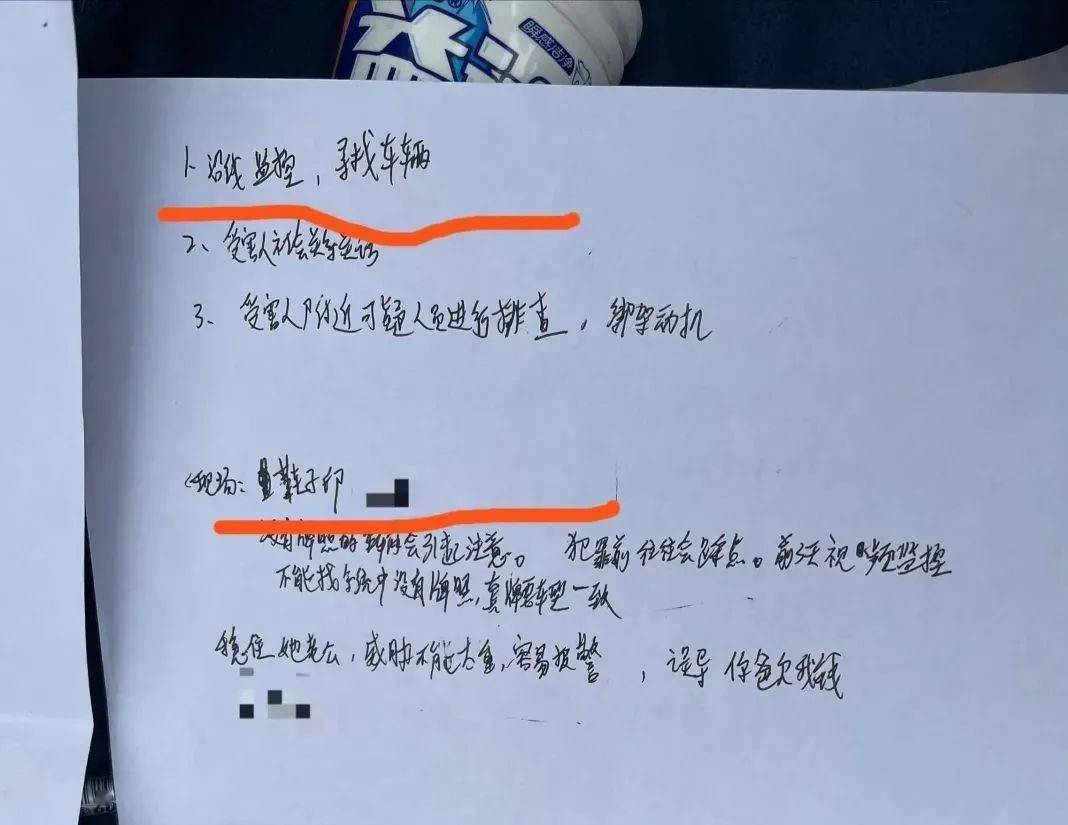 瞬感洁净
1、沿线监控，寻找车辆
2、受害人社会关系
3、受害人附近可疑人员进行排查，绑架动机
现场：量鞋子印
没有牌照的车辆会引起注意。 犯罪前往往会踩点。前沿视频监控
不能找系统中没有牌照，套牌要车型一致
稳住她老公，威胁不能太重，容易报警，误导你爸欠我钱